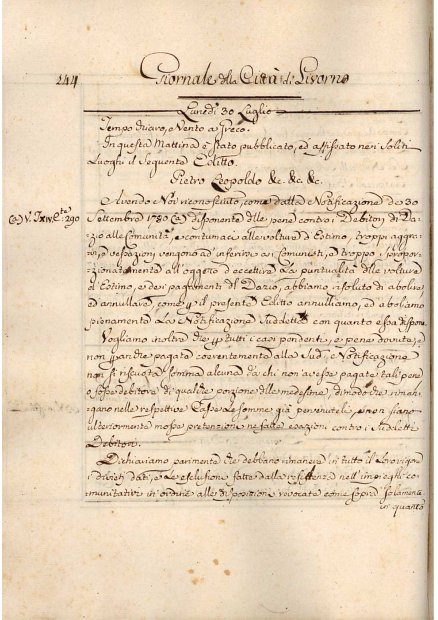 244
Giornale della Città di Livorno
Lunedì 30 Luglio
Tempo Chiaro, e Vento a Greco.
In questa Mattina è stato pubblicato, ed affissato nei Soliti
Luoghi il Seguente Editto.
Pietro Leopoldo &c. &c. &c.
Avendo Noi riconosciuto, come dalla Notificazione de 30
(a) V. 290
Settembre 1780 (a) disponente delle pene contro i Debitori di Da-
zio alle Comunità, e contumaci alle volture d'Estimo, troppi aggra-
vi, e vessazioni vengono ad inferirsi ai Comunisti, e troppo spropor-
zionatamente all oggetto d'eccitare La puntualità delle volture
d'Estimo, e dei pagamenti del Dazio, abbiamo risoluto di abolire,
ed annullare, come il presente Editto annulliamo, ed aboliamo
pienamente La Notificazione Suddetta con quanto essa dispone.
Vogliamo inoltre che tutti i casi pendenti, e pene dovute, e
non anche pagate coerentemente alla Sud.a Notificazione
non si riscuota Somma alcuna da chi non avesse pagate tali pene
o fosse debitore di qualche porzione delle medesime, di modo che riman-
gano nelle respettive Casse Le Somme già pervenuteli, e non siano
ulteriormente mosse pretenzioni, ne fatte esazioni contro i Suddetti
Debitori.
Dichiariamo parimente che debbano rimanere in tutto il Loro vigore
i divieti dati, e Le esclusioni fatte dalla residenza, nell'impieghi co-
munitativi in ordine alle disposizioni revocate come sopra Solamente
in quanto